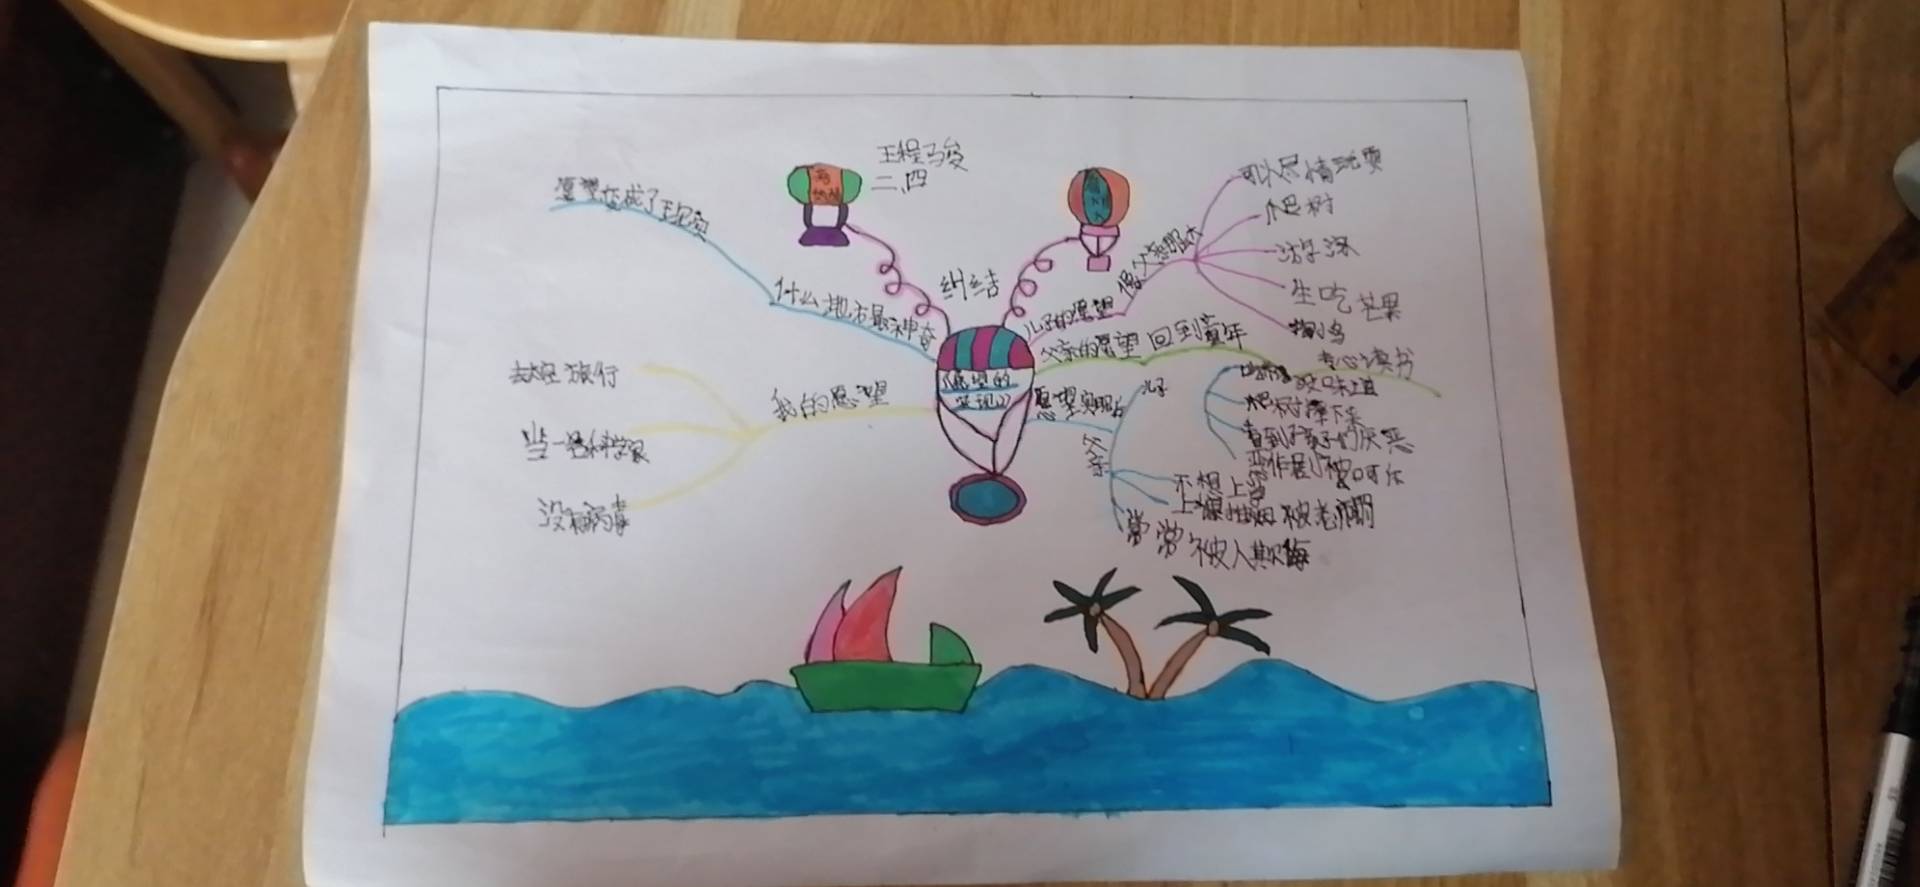 王程马俊
二、四
愿望变成了现实
什么地方最神奇
纠结
儿子的愿望
像父亲那样
可以尽情玩耍
爬树
游泳
生吃芒果
掏小鸟
父亲的愿望
回到童年
专心读书
《愿望的
实现》
我的愿望
去太空旅行
当一名科学家
没有病毒
愿望实现后
儿子
没味道
爬树摔下来
看到孩子们厌恶
恶作剧被呵斥
父亲
不想上学
上课被老师罚
常常被人欺侮